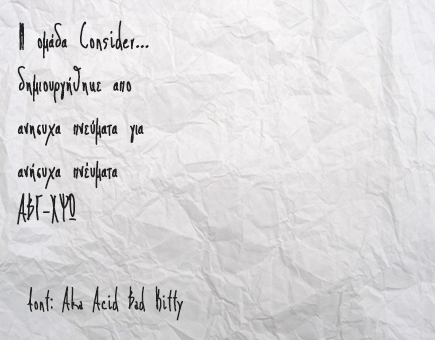 Η ομάδα Consider...
δημιουργήθηκε απο
ανησυχα πνεύματα για
ανήσυχα πνέυματα
ΑΒΓ-ΧΨΩ
font: Aka Acid Bad Kitty